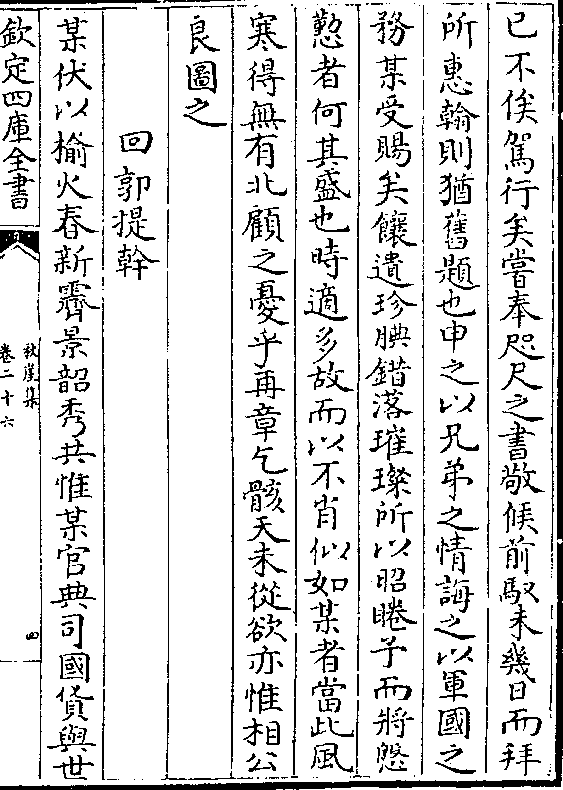 已不俟駕行矣嘗奉咫尺之書敬候前馭未幾日而拜
所惠翰則猶舊題也申之以兄弟之情誨之以軍國之
務某受賜矣饟遺珍腆錯落璀璨所以昭睠予而將慇
懃者何其盛也時適多故而以不肖似如某者當此風
寒得無有北顧之憂乎再章乞骸天未從欲亦惟相公
良圖之
回郭提幹
某伏以榆火春新霽景韶秀共惟某官典司國貨與世
欽定四庫全書
秋崖集
卷二十六
四